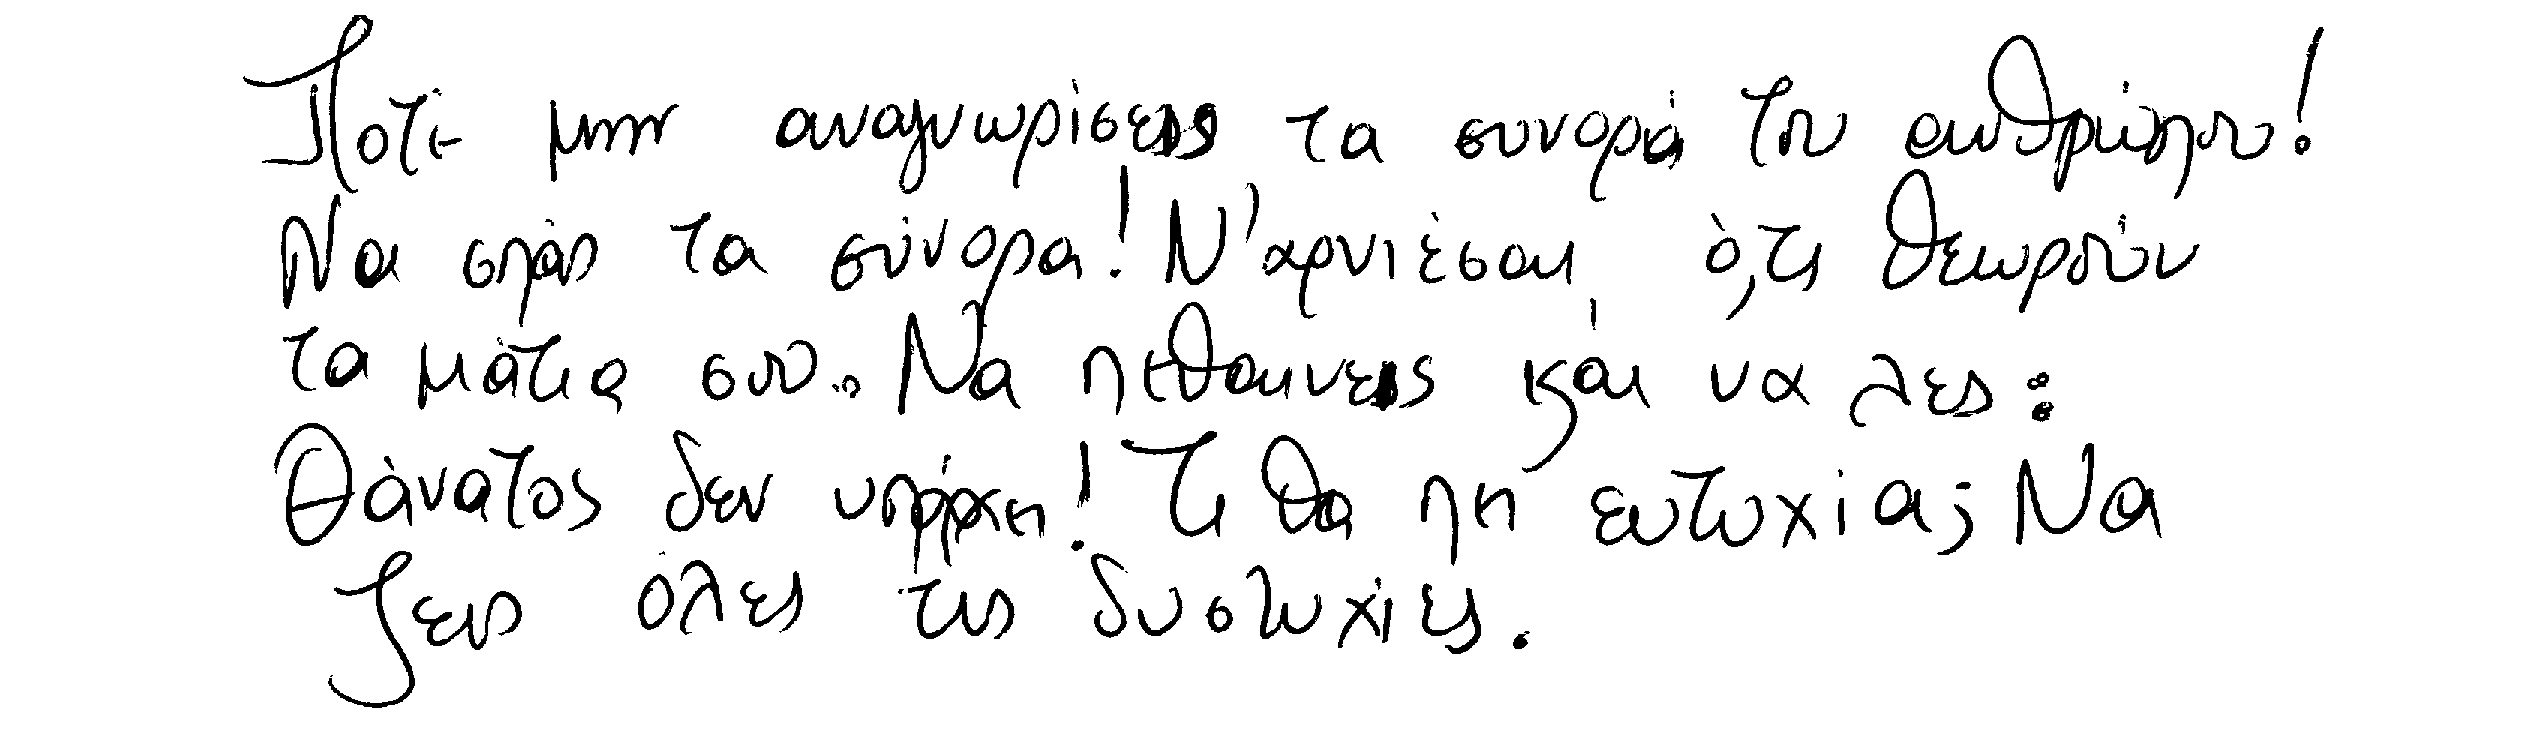 Ποτέ μην αναγνωρίσεις τα συνορά του ανθρώπου!
Να σπας τα σύνορα! Ν' αρνιέσαι ό,τι θεωρούν
τα μάτια σου. Να πεθαίνεις και να λες:
Θάνατος δεν υπάρχει! Τι θα πει ευτυχία; Να
ζεις όλες τις δυστυχίες.